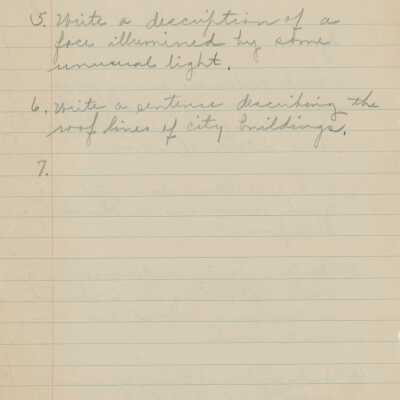 5. Write a description of a
face illumined by some
unusual light.
6. Write a sentence describing the
roof lines of city buildings.
7.